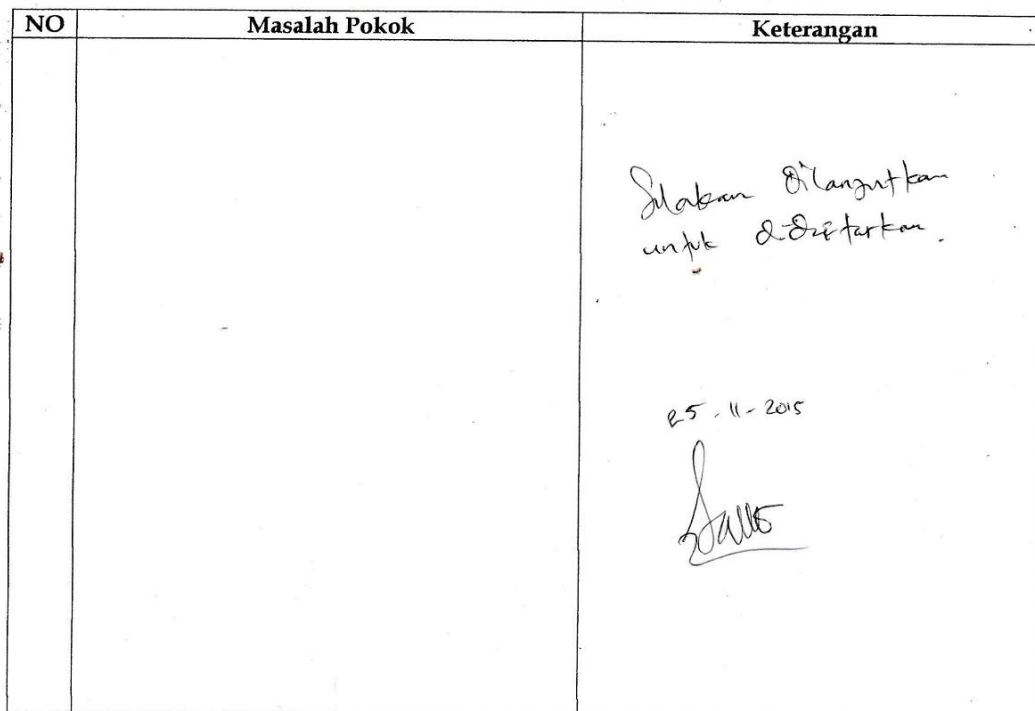 NO Masalah Pokok Keterangan
Silakan dilanjutkan
untuk didaftarkan.
25-11-2015